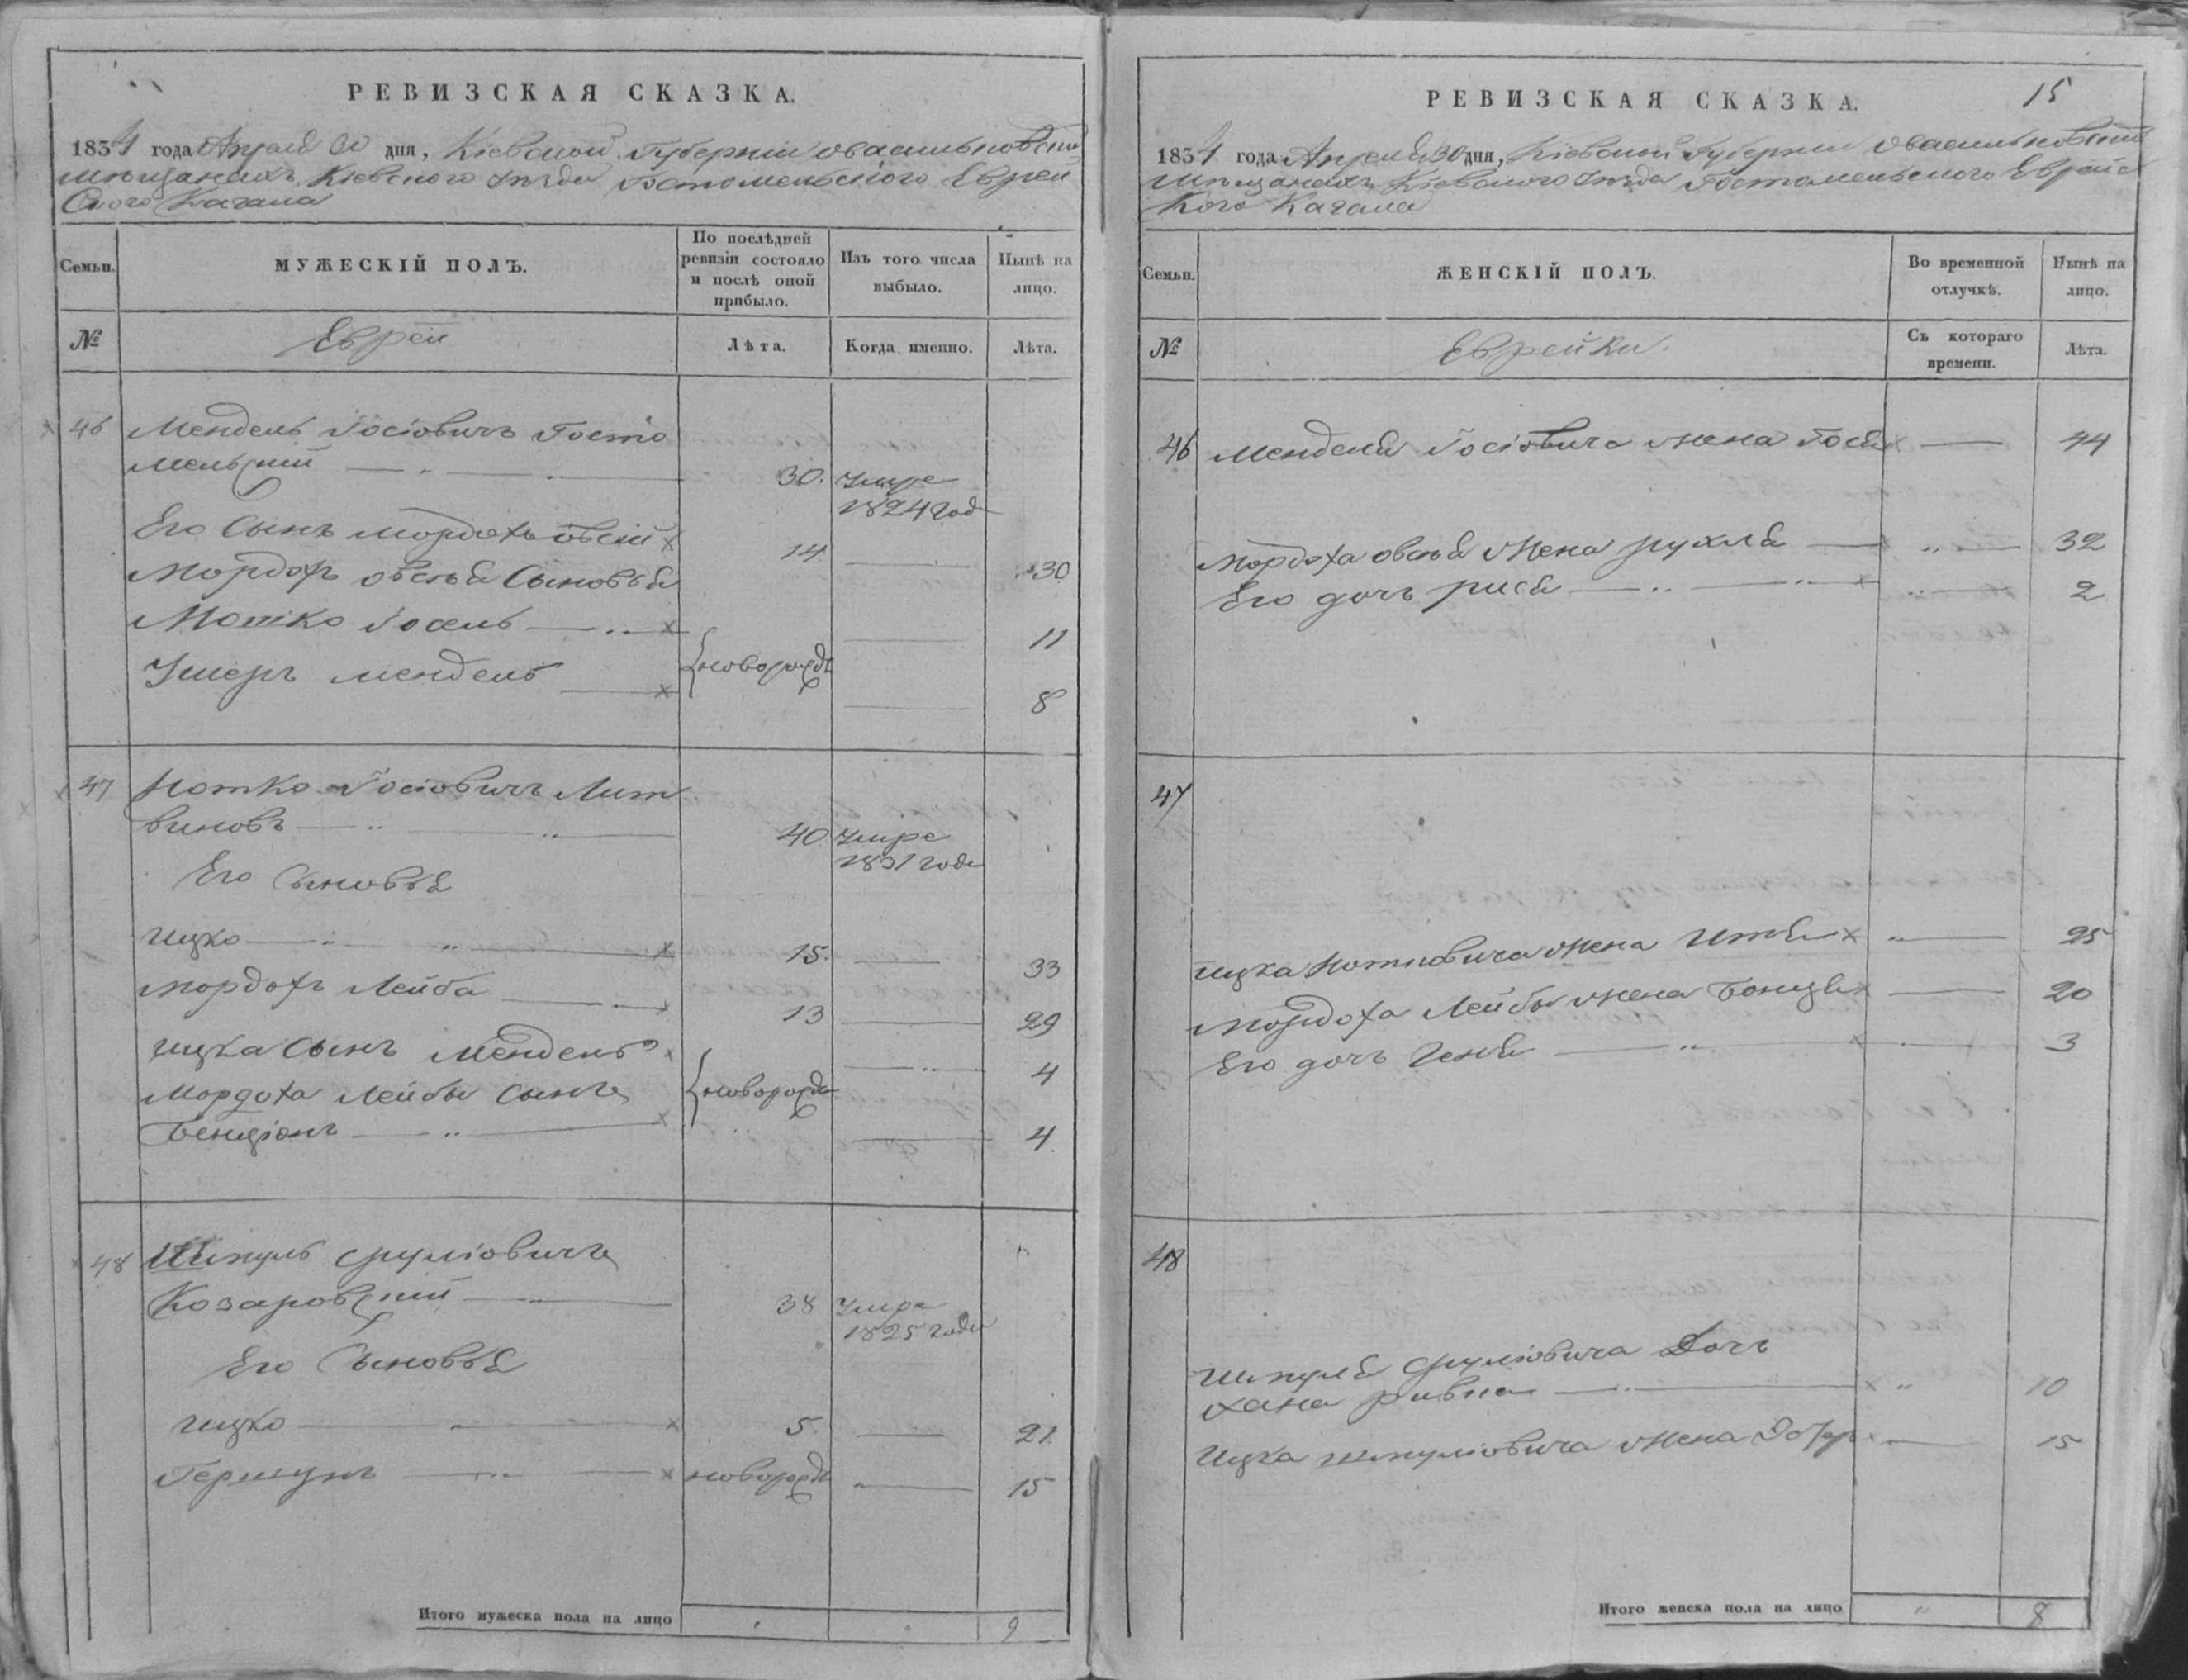 РЕВИЗСКАЯ СКАЗКА.
1834 года Апреля 30 дня, Кіевской Губерніи о васильковскихъ
мещанахъ Кіевского уезда Гостомельского Еврей
ского Кагала
Семьи.
МУЖЕСКІЙ ПОЛЪ.
По послѣдней ревизіи состояло и послѣ оной прибыло.
Изъ того числа выбыло.
Нынѣ на лицо.
№
Евреи
Лѣта.
Когда именно.
Лѣта.
46 Мендель Іосіовичъ Госто
мельскій 30. умре
1824 год
Его Сынъ Мордохъ овсій 14 30
Мордох овсѣя Сыновья
Мошко Іосель 11
Ушеръ мендель новорожд 8
47 Нотко Іосіовичъ Лит
виновъ 40 умре
1831 года
Его Сыновья
ицко 15. 33
мордохъ Лейба 13 29
ицка Сынъ Мендель 4
Мордоха Лейбы Сынъ новорожд
Бенціонъ 4
48 Шмуль Сруліовичъ
Козаровскій 38 умре
1825 года
Его Сыновья
ицко 5. 21
Гершунъ новорожд 15
Итого мужеска пола на лицо 9
РЕВИЗСКАЯ СКАЗКА.
15
1834 года Апреля 30 дня, Кіевской Губерніи о васильковскихъ
мещанахъ Кіевского уезда Гостомельского Еврейс
кого Кагала
Семьи.
ЖЕНСКІЙ ПОЛЪ.
Во временной отлучкѣ.
Нынѣ на лицо.
№
Еврейки.
Съ котораго времени.
Лѣта.
46 Менделя Іосіовича жена 44
Мордоха овсѣя жена рухля 32
Его дочь рися 2
47
ицка Нотковича жена 25
Мордоха Лейбы жена 20
Его дочь Геня 3
48
Шмуля Сруліовича Дочь
хана ривка 10
Ицка шмуліовича жена 15
Итого женска пола на лицо 8